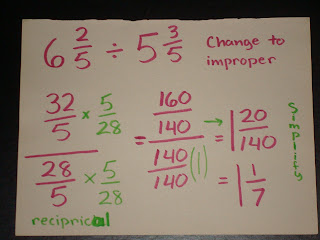 6 2/5 ÷ 5 3/5 Change to
improper
32/5 × 5/28
28/5 × 5/28
= 160/140
140/140 (1)
→ = 1 20/140
= 1 1/7
Simplify
reciprical